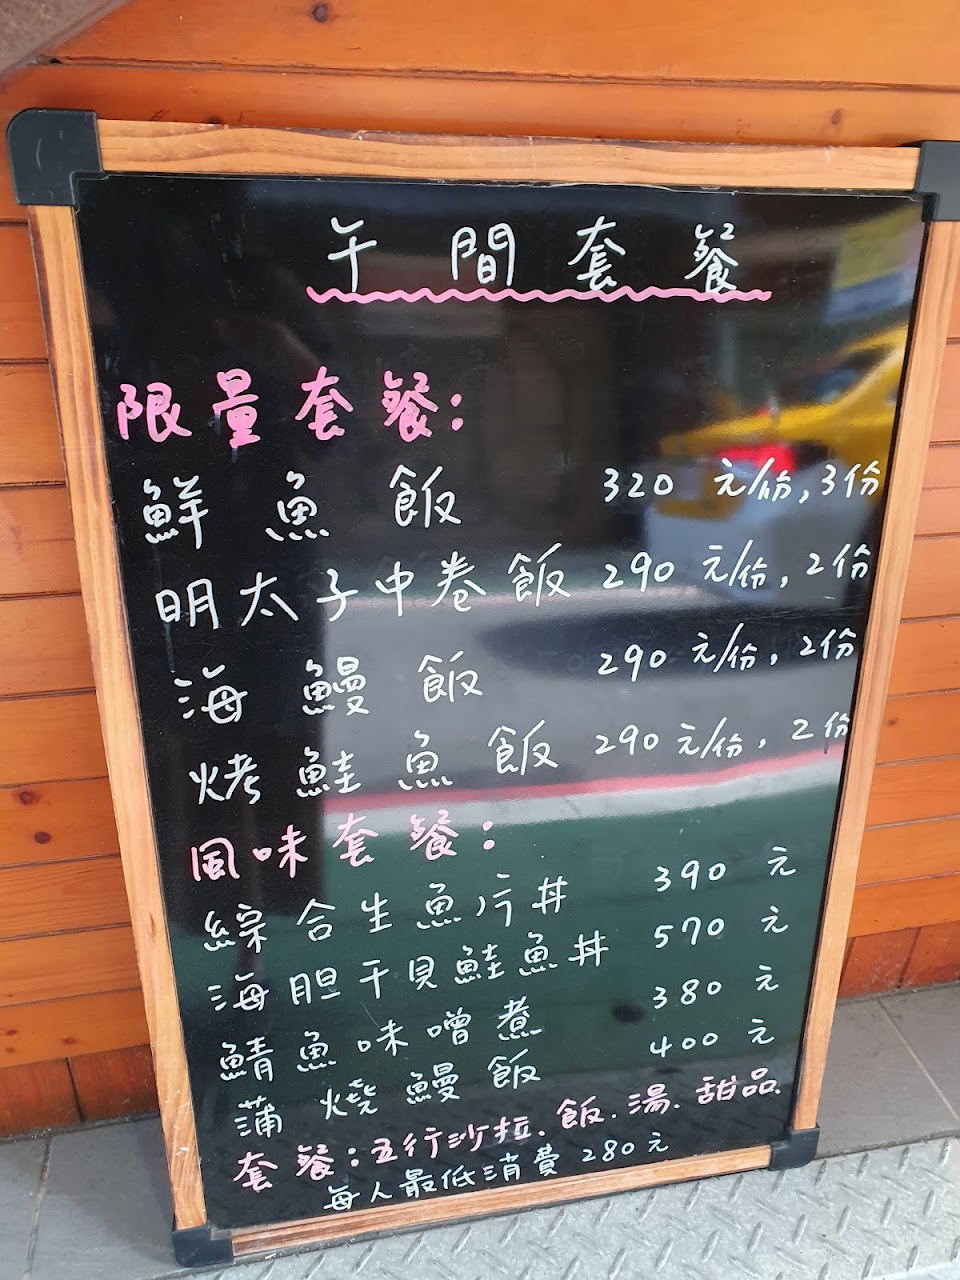 午間套餐
限量套餐:
鮮魚飯 320元/份,3份
明太子中卷飯 290元/份,2份
海鰻飯 290元/份,2份
烤鮭魚飯 290元/份,2份
風味套餐:
綜合生魚片丼 390元
海胆干貝鮭魚丼 570元
鯖魚味噌煮 380元
蒲燒鰻飯 400元
套餐:五行沙拉.飯.湯.甜品.
每人最低消費280元